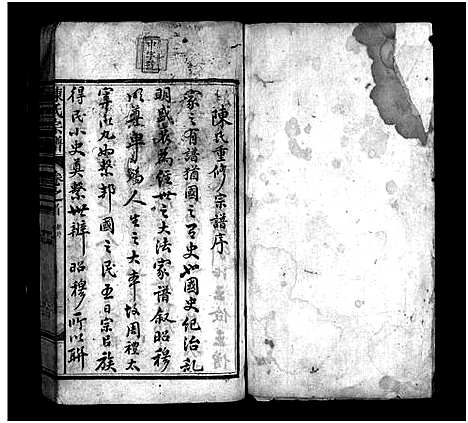 陳氏重修宗譜序
家之有譜猶國之有史也國史紀治亂
明盛衰為經世之大法家譜叙昭穆
以尊卑為人生之大本故周禮太
宰以九兩繫邦國之民五曰宗以族
得民小史奠繫世辨昭穆所以聯
陳氏宗譜